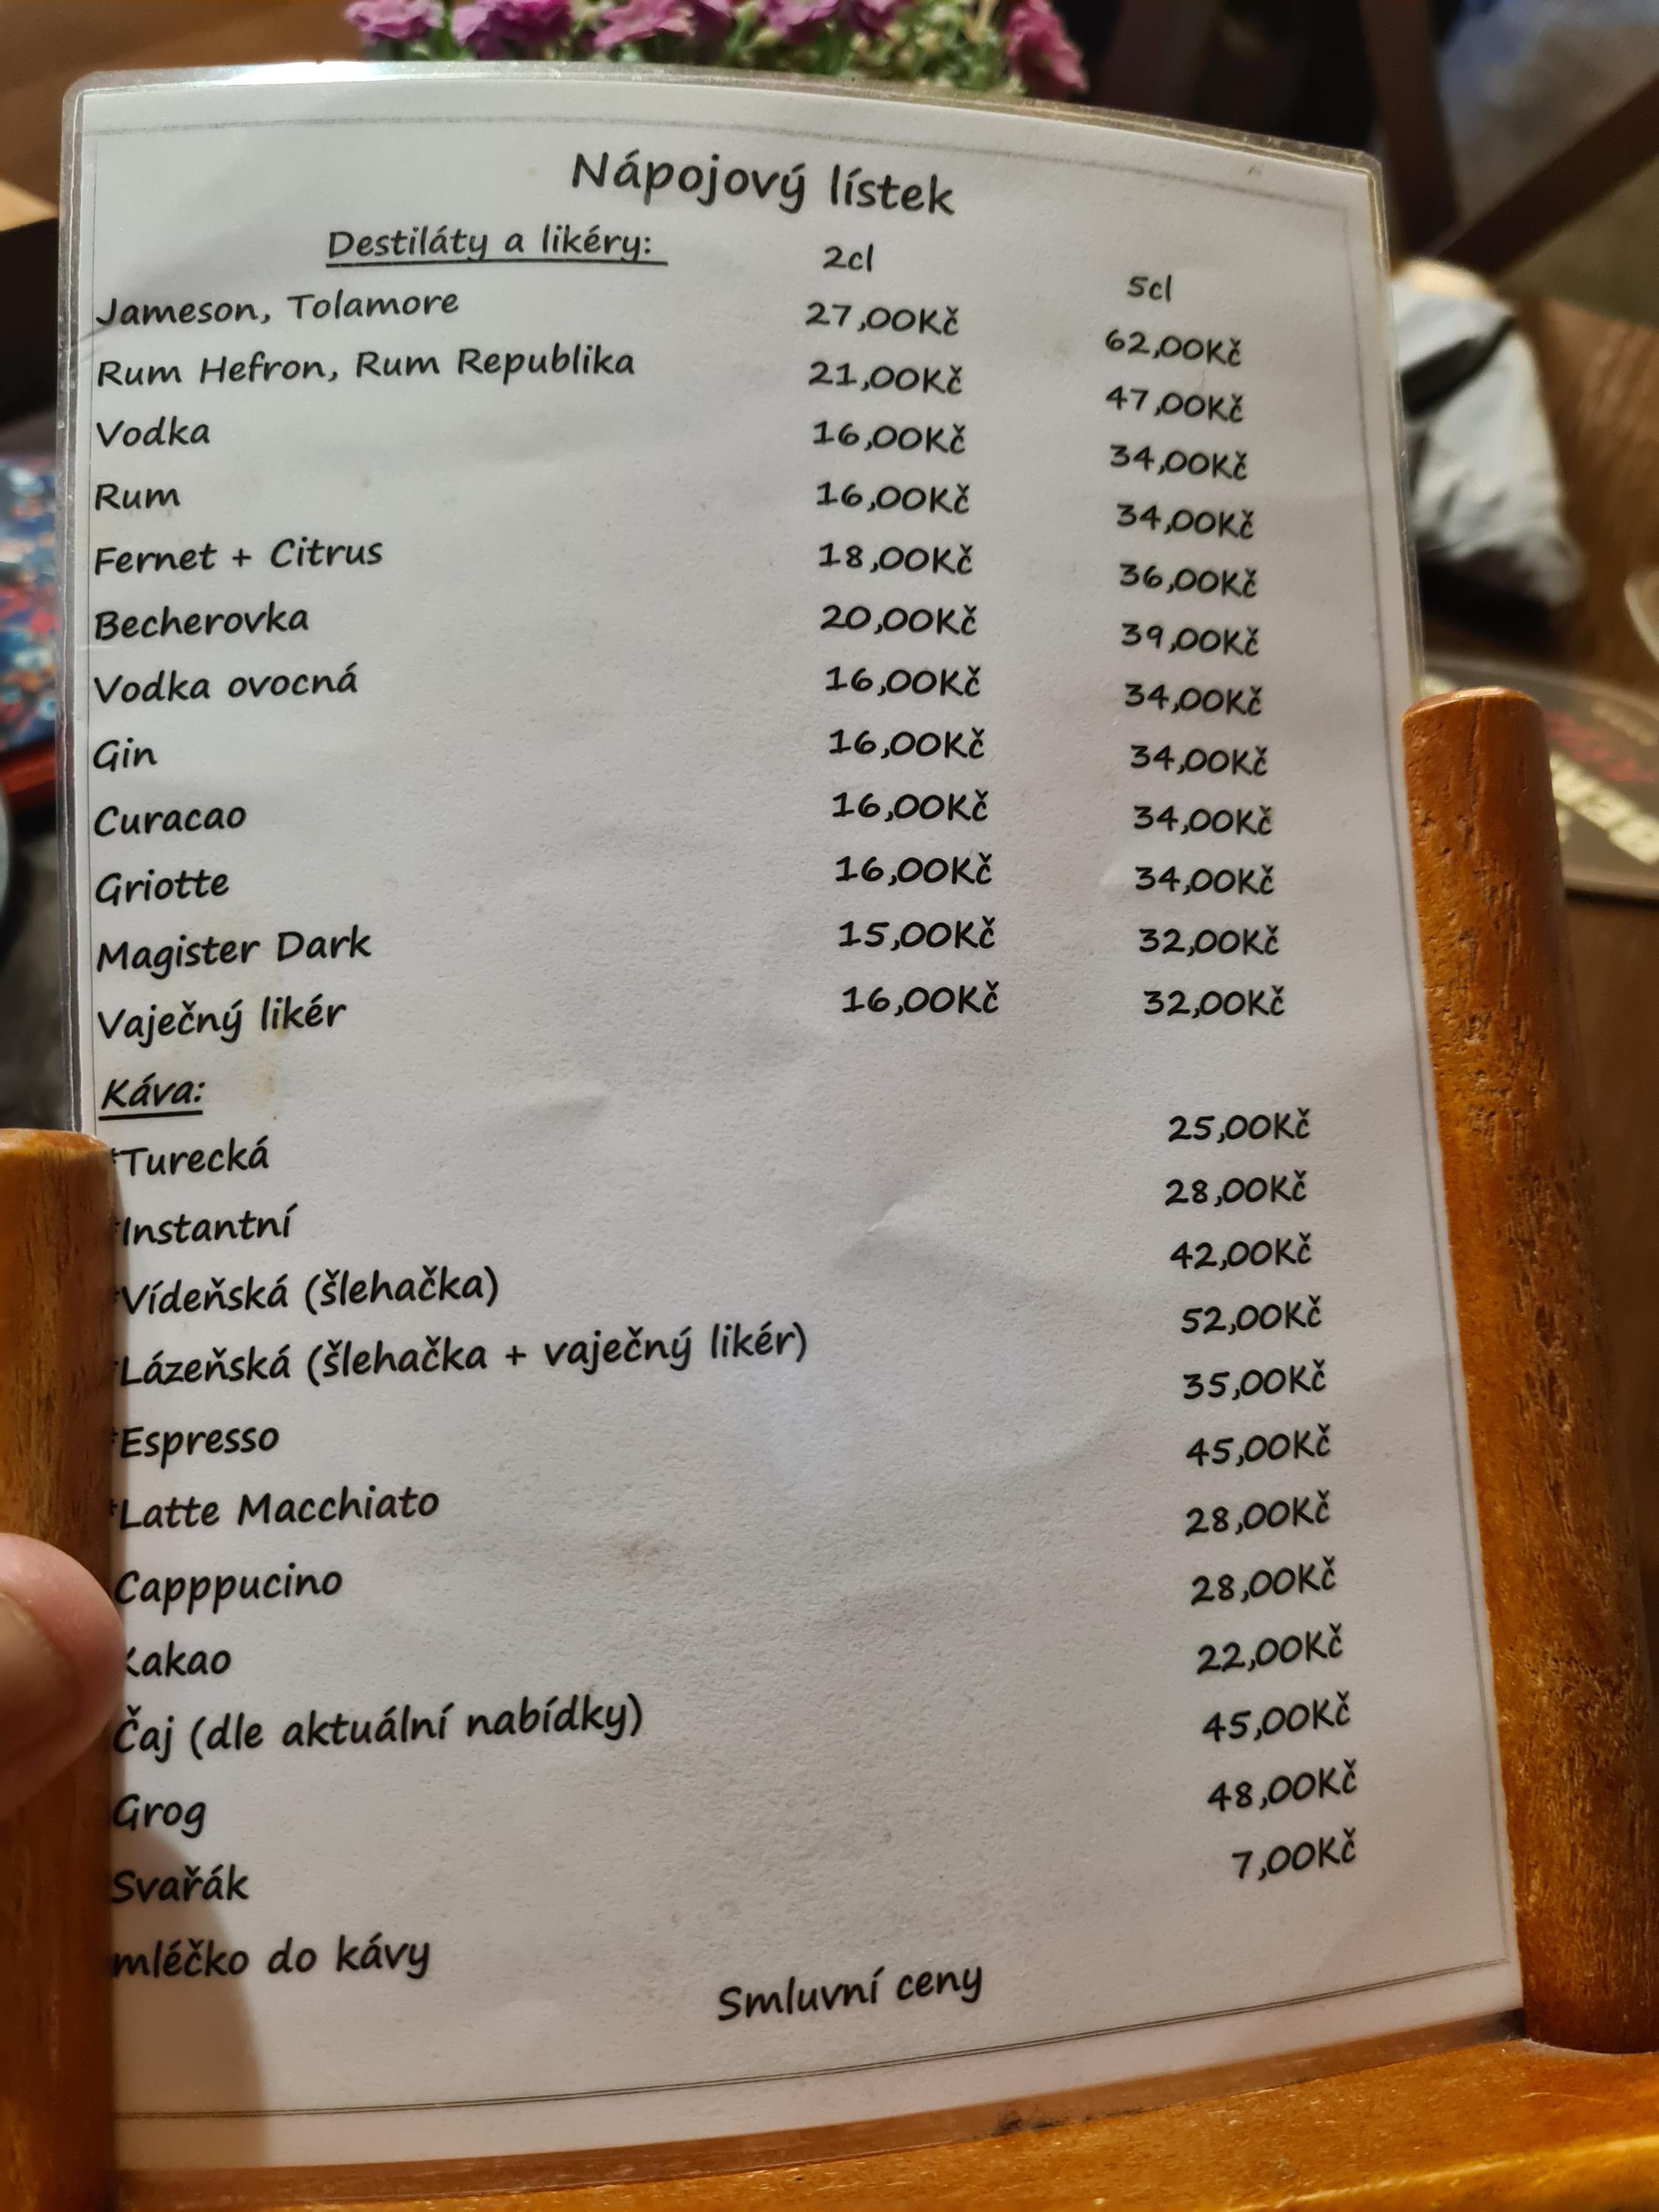 Nápojový lístek
Destiláty a likéry: 2cl 5cl
Jameson, Tolamore 27,00Kč 62,00Kč
Rum Hefron, Rum Republika 21,00Kč 47,00Kč
Vodka 16,00Kč 34,00Kč
Rum 16,00Kč 34,00Kč
Fernet + Citrus 18,00Kč 36,00Kč
Becherovka 20,00Kč 39,00Kč
Vodka ovocná 16,00Kč 34,00Kč
Gin 16,00Kč 34,00Kč
Curacao 16,00Kč 34,00Kč
Griotte 16,00Kč 34,00Kč
Magister Dark 15,00Kč 32,00Kč
Vaječný likér 16,00Kč 32,00Kč
Káva:
*Turecká 25,00Kč
*Instantní 28,00Kč
*Vídeňská (šlehačka) 42,00Kč
*Lázeňská (šlehačka + vaječný likér) 52,00Kč
*Espresso 35,00Kč
*Latte Macchiato 45,00Kč
Capppucino 28,00Kč
Kakao 28,00Kč
Čaj (dle aktuální nabídky) 22,00Kč
Grog 45,00Kč
Svařák 48,00Kč
mléčko do kávy 7,00Kč
Smluvní ceny